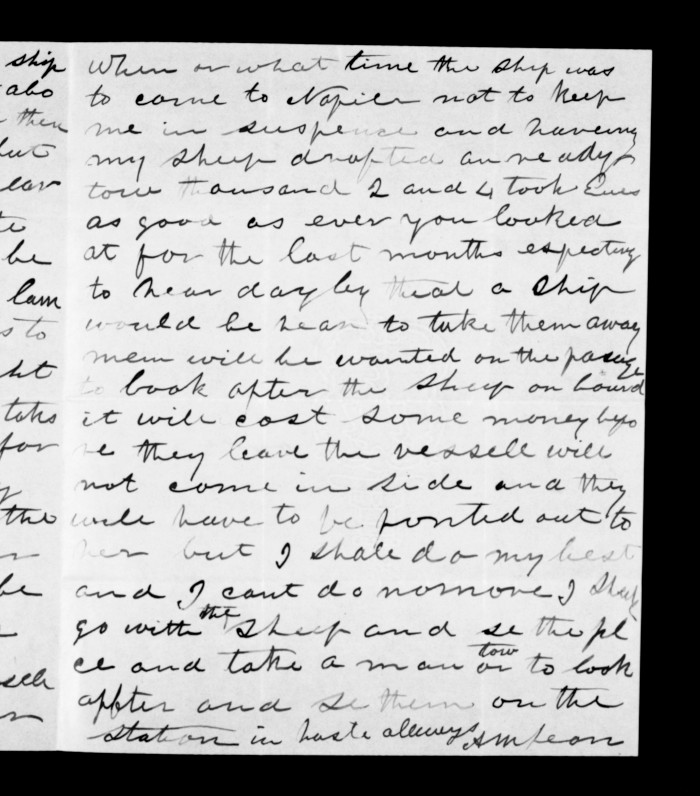 ship
also
then
but
ear
te
be
lam
s to
ht
taks
for
y
the
be
sell
When or what time the ship was
to come to Napier not to keep
me in suspence and haveing
my sheep drafted an ready
tow thousand 2 and 4 took Ewes
as good as ever you looked
at for the last months expecting
to hear day by theat a ship
would be hear to take them away
mem will be wanted on the pasage
to look after the sheep on board
it will cost some money befo
re they leave the vessell will
not come in side and they
will have to be ponted out to
her but I shall do my best
and I cant do nomore I
go with the sheep and se the pl
ce and take a man or tow to look
affter and se them on the
station in haste allways